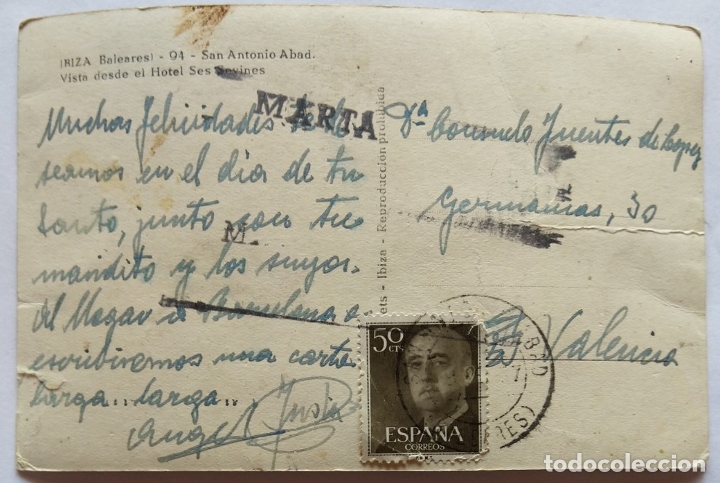 IBIZA Baleares) - 94 - San Antonio Abad.
Vista desde el Hotel Ses Savines
MARTA
Muchas felicidades. te de
seamos en el dia de tu
Santo, junto con tu
M.
maridito y los suyos.
Al llegar a Barcelona e
scribiremos una carta
larga... larga...
Angel
Reproducción prohibida
Ibiza
Dª Consuelo Fuentes de Lopez
Germanias, 30
Valencia
50
CTS
ESPAÑA
CORREOS
todocoleccion.net